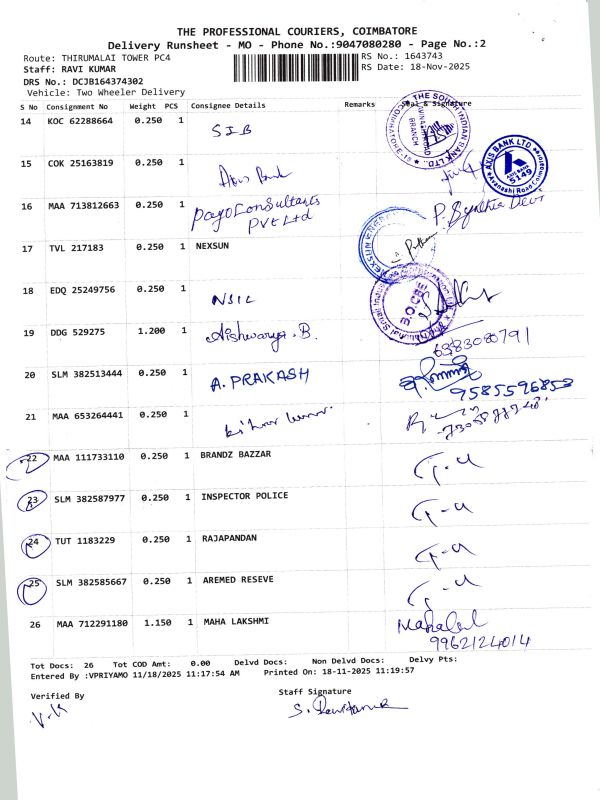 THE PROFESSIONAL COURIERS, COIMBATORE
Delivery Runsheet - MO - Phone No.:9047080280 - Page No.:2
Route: THIRUMALAI TOWER PC4
RS No.: 1643743
Staff: RAVI KUMAR
RS Date: 18-Nov-2025
DRS No.: DCJB164374302
Vehicle: Two Wheeler Delivery
S No Consignment No Weight PCS Consignee Details Remarks Seal & Signature
14 KOC 62288664 0.250 1 SIB
THE SOUTH INDIAN BANK LTD. BRANCH
15 COK 25163819 0.250 1 Axis Bank
AXIS BANK LTD AXIS BANK 5149
16 MAA 713812663 0.250 1 Payoconsultants
PVt Ltd
17 TVL 217183 0.250 1 NEXSUN
18 EDQ 25249756 0.250 1 NSIL
B.O.CBE
19 DDG 529275 1.200 1 Aishwarya.B. 6383080791
20 SLM 382513444 0.250 1 A. PRAKASH
9585596853
21 MAA 653264441 0.250 1
22 MAA 111733110 0.250 1 BRANDZ BAZZAR
23 SLM 382587977 0.250 1 INSPECTOR POLICE
24 TUT 1183229 0.250 1 RAJAPANDAN
25 SLM 382585667 0.250 1 AREMED RESEVE
26 MAA 712291180 1.150 1 MAHA LAKSHMI
9962124014
Tot Docs: 26 Tot COD Amt: 0.00 Delvd Docs: Non Delvd Docs: Delvy Pts:
Entered By :VPRIYAMO 11/18/2025 11:17:54 AM Printed On: 18-11-2025 11:19:57
Verified By
Staff Signature
V.K